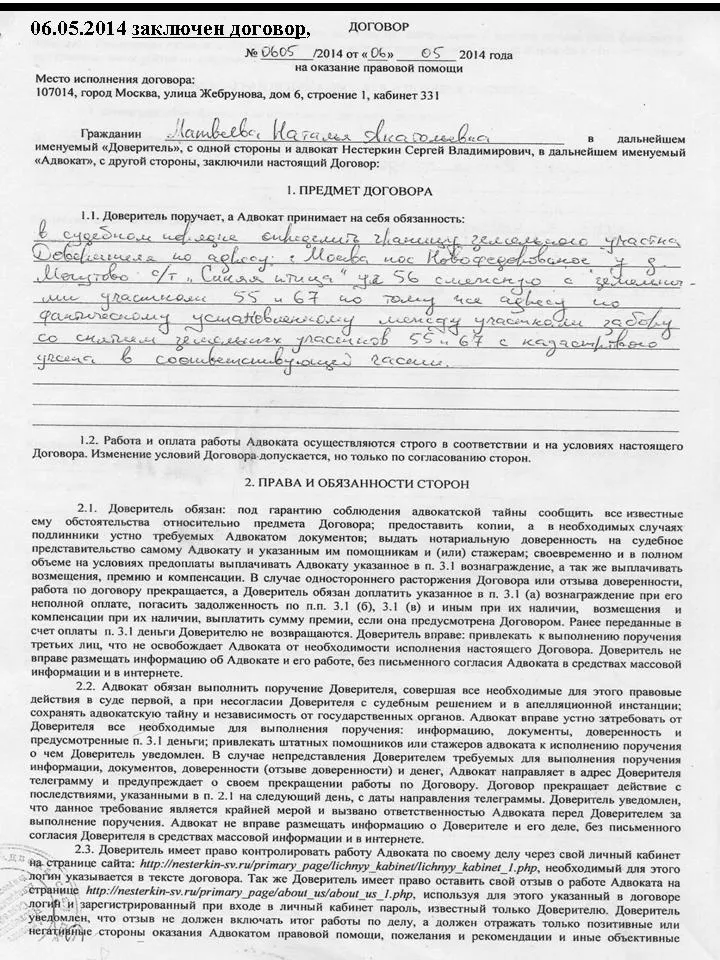 06.05.2014 заключен договор,
ДОГОВОР
№ 0605 /2014 от «06» 05 2014 года
на оказание правовой помощи
Место исполнения договора:
107014, город Москва, улица Жебрунова, дом 6, строение 1, кабинет 331
Гражданин Матвеева Наталья Анатольевна в дальнейшем
именуемый «Доверитель», с одной стороны и адвокат Нестеркин Сергей Владимирович, в дальнейшем именуемый
«Адвокат», с другой стороны, заключили настоящий Договор:
1. ПРЕДМЕТ ДОГОВОРА
1.1. Доверитель поручает, а Адвокат принимает на себя обязанность:
в судебном порядке определить границу земельного участка
Доверителя по адресу: г. Москва пос Новофедоровское у д.
с/т "Синяя птица" уч 56 смежную с земельны-
ми участками 55 и 67 по тому же адресу по
фактическому установленному между участками забору
со снятием земельных участков 55 и 67 с кадастрового
учета в соответствующей части.
1.2. Работа и оплата работы Адвоката осуществляются строго в соответствии и на условиях настоящего
Договора. Изменение условий Договора допускается, но только по согласованию сторон.
2. ПРАВА И ОБЯЗАННОСТИ СТОРОН
2.1. Доверитель обязан: под гарантию соблюдения адвокатской тайны сообщить все известные
ему обстоятельства относительно предмета Договора; предоставить копии, а в необходимых случаях
подлинники устно требуемых Адвокатом документов; выдать нотариальную доверенность на судебное
представительство самому Адвокату и указанным им помощникам и (или) стажерам; своевременно и в полном
объеме на условиях предоплаты выплачивать Адвокату указанное в п. 3.1 вознаграждение, а так же выплачивать
возмещения, премию и компенсации. В случае одностороннего расторжения Договора или отзыва доверенности,
работа по договору прекращается, а Доверитель обязан доплатить указанное в п. 3.1 (а) вознаграждение при его
неполной оплате, погасить задолженность по п.п. 3.1 (б), 3.1 (в) и иным при их наличии, возмещения и
компенсации при их наличии, выплатить сумму премии, если она предусмотрена Договором. Ранее переданные в
счет оплаты п. 3.1 деньги Доверителю не возвращаются. Доверитель вправе: привлекать к выполнению поручения
третьих лиц, что не освобождает Адвоката от необходимости исполнения настоящего Договора. Доверитель не
вправе размещать информацию об Адвокате и его работе, без письменного согласия Адвоката в средствах массовой
информации и в интернете.
2.2. Адвокат обязан выполнить поручение Доверителя, совершая все необходимые для этого правовые
действия в суде первой, а при несогласии Доверителя с судебным решением и в апелляционной инстанции;
сохранять адвокатскую тайну и независимость от государственных органов. Адвокат вправе устно затребовать от
Доверителя все необходимые для выполнения поручения: информацию, документы, доверенность и
предусмотренные п. 3.1 деньги; привлекать штатных помощников или стажеров адвоката к исполнению поручения
о чем Доверитель уведомлен. В случае непредставления Доверителем требуемых для выполнения поручения
информации, документов, доверенности (отзыве доверенности) и денег, Адвокат направляет в адрес Доверителя
телеграмму и предупреждает о своем прекращении работы по Договору. Договор прекращает действие с
последствиями, указанными в п. 2.1 на следующий день, с даты направления телеграммы. Доверитель уведомлен,
что данное требование является крайней мерой и вызвано ответственностью Адвоката перед Доверителем за
выполнение поручения. Адвокат не вправе размещать информацию о Доверителе и его деле, без письменного
согласия Доверителя в средствах массовой информации и в интернете.
2.3. Доверитель имеет право контролировать работу Адвоката по своему делу через свой личный кабинет
на странице сайта: http://nesterkin-sv.ru/primary_page/lichnyy_kabinet/lichnyy_kabinet_1.php, необходимый для этого
логин указывается в тексте договора. Так же Доверитель имеет право оставить свой отзыв о работе Адвоката на
странице http://nesterkin-sv.ru/primary_page/about_us/about_us_1.php, используя для этого указанный в договоре
логин и зарегистрированный при входе в личный кабинет пароль, известный только Доверителю. Доверитель
уведомлен, что отзыв не должен включать итог работы по делу, а должен отражать только позитивные или
негативные стороны оказания Адвокатом правовой помощи, пожелания и рекомендации и иные объективные